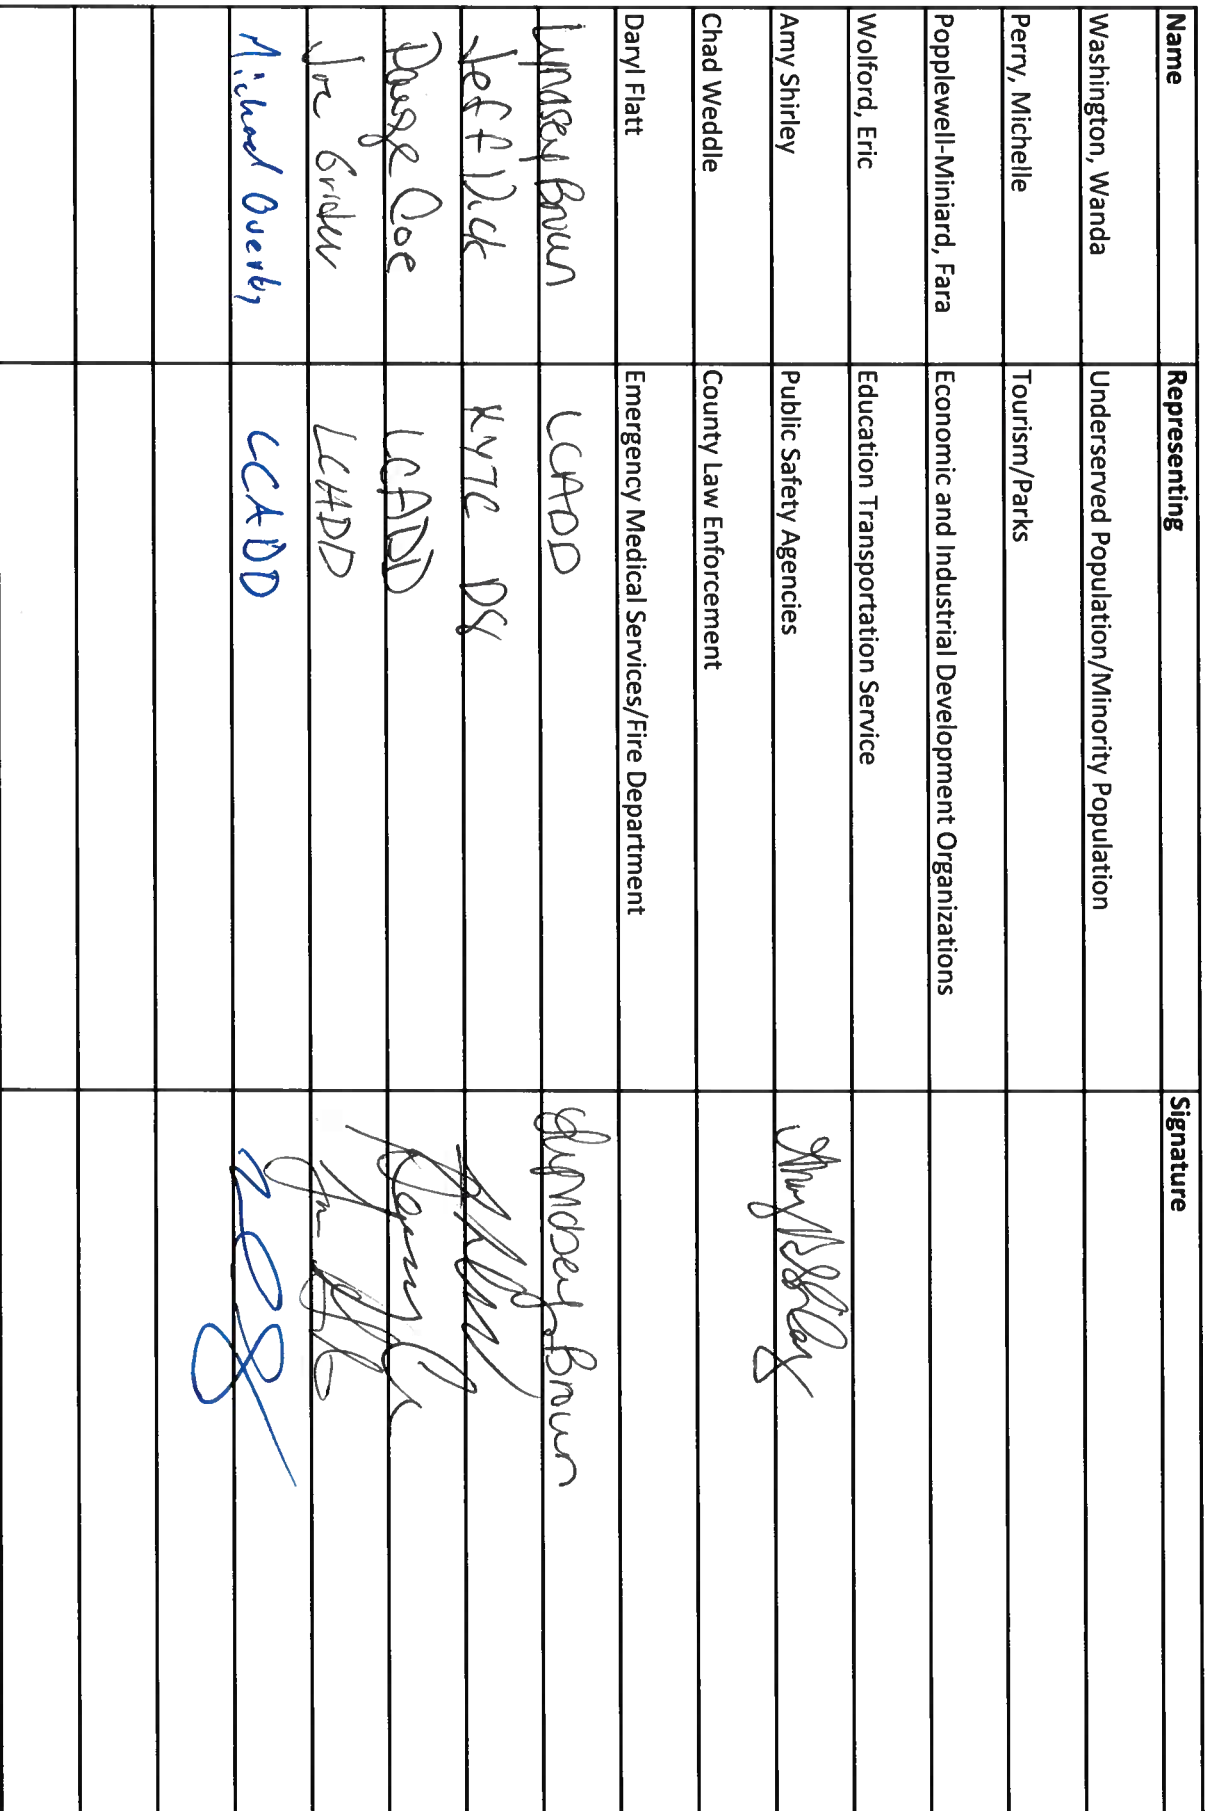 Name Representing Signature
Washington, Wanda Underserved Population/Minority Population
Perry, Michelle Tourism/Parks
Popplewell-Miniard, Fara Economic and Industrial Development Organizations
Wolford, Eric Education Transportation Service
Amy Shirley Public Safety Agencies Amy Shirley
Chad Weddle County Law Enforcement
Daryl Flatt Emergency Medical Services/Fire Department
Lyndsey Brown LCADD Lyndsey Brown
Jeff Dick KYTC D8
Daryge Coe LCADD
Joe Grider LCADD
Michael Overby LCADD